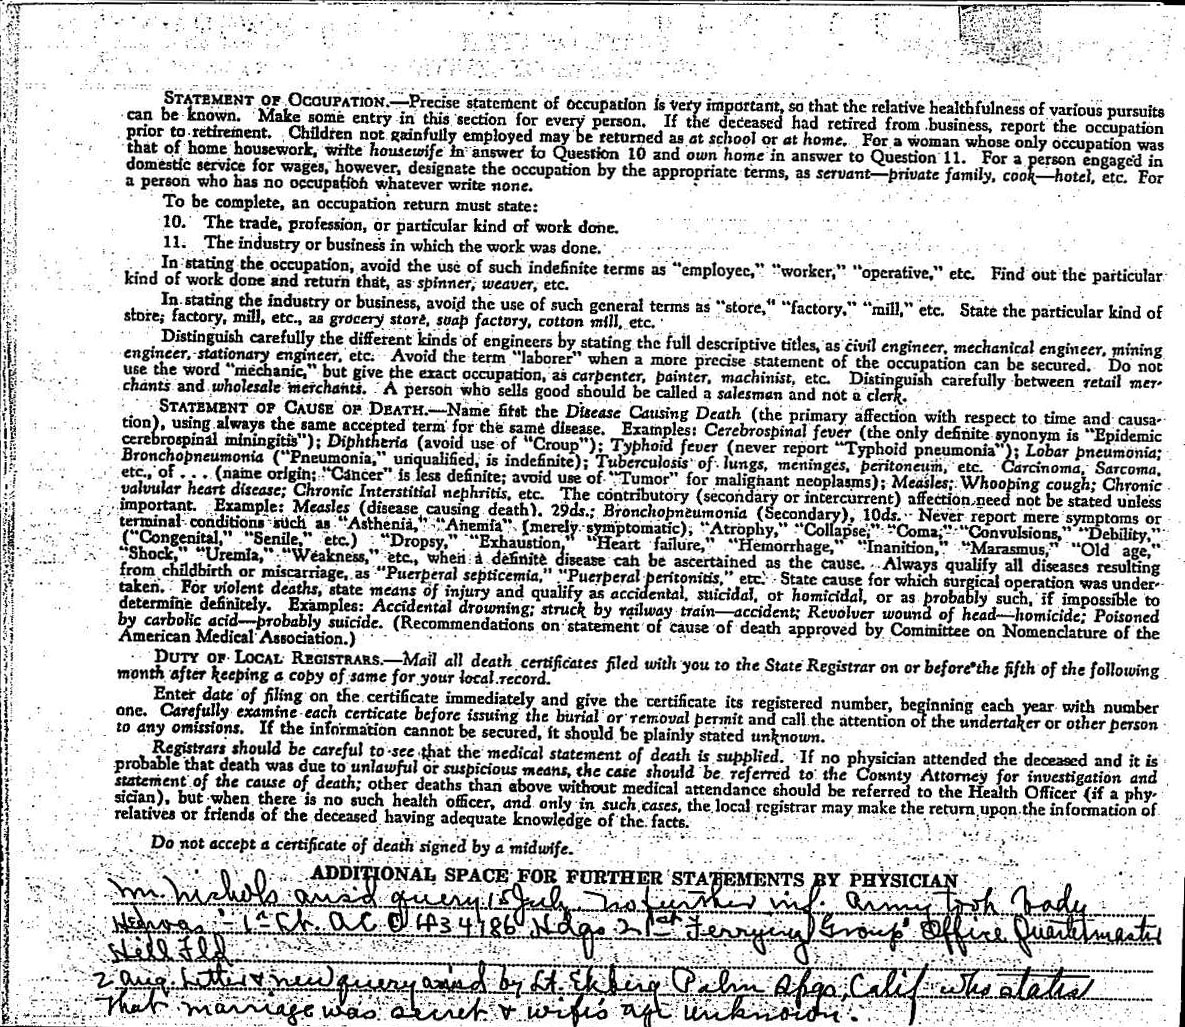 STATEMENT OF OCCUPATION.—Precise statement of occupation is very important, so that the relative healthfulness of various pursuits
can be known. Make some entry in this section for every person. If the deceased had retired from business, report the occupation
prior to retirement. Children not gainfully employed may be returned as at school or at home. For a woman whose only occupation was
that of home housework, write housewife in answer to Question 10 and own home in answer to Question 11. For a person engaged in
domestic service for wages, however, designate the occupation by the appropriate terms, as servant—private family, cook—hotel, etc. For
a person who has no occupation whatever write none.
To be complete, an occupation return must state:
10. The trade, profession, or particular kind of work done.
11. The industry or business in which the work was done.
In stating the occupation, avoid the use of such indefinite terms as "employee," "worker," "operative," etc. Find out the particular
kind of work done and return that, as spinner, weaver, etc.
In stating the industry or business, avoid the use of such general terms as "store," "factory," "mill," etc. State the particular kind of
store, factory, mill, etc., as grocery store, soap factory, cotton mill, etc.
Distinguish carefully the different kinds of engineers by stating the full descriptive titles, as civil engineer, mechanical engineer, mining
engineer, stationary engineer, etc. Avoid the term "laborer" when a more precise statement of the occupation can be secured. Do not
use the word "mechanic," but give the exact occupation, as carpenter, painter, machinist, etc. Distinguish carefully between retail mer-
chants and wholesale merchants. A person who sells good should be called a salesman and not a clerk.
STATEMENT OF CAUSE OF DEATH.—Name first the Disease Causing Death (the primary affection with respect to time and causa-
tion), using always the same accepted term for the same disease. Examples: Cerebrospinal fever (the only definite synonym is "Epidemic
cerebrospinal miningitis"); Diphtheria (avoid use of "Croup"); Typhoid fever (never report "Typhoid pneumonia"); Lobar pneumonia;
Bronchopneumonia ("Pneumonia," unqualified, is indefinite); Tuberculosis of lungs, meninges, peritoneum, etc. Carcinoma, Sarcoma,
etc., of . . . (name origin; "Cancer" is less definite; avoid use of "Tumor" for malignant neoplasms); Measles; Whooping cough; Chronic
valvular heart disease; Chronic Interstitial nephritis, etc. The contributory (secondary or intercurrent) affection need not be stated unless
important. Example: Measles (disease causing death), 29ds.; Bronchopneumonia (Secondary), 10ds. Never report mere symptoms or
terminal conditions such as "Asthenia," "Anemia" (merely symptomatic), "Atrophy," "Collapse," "Coma," "Convulsions," "Debility,"
("Congenital," "Senile," etc.) "Dropsy," "Exhaustion," "Heart failure," "Hemorrhage," "Inanition," "Marasmus," "Old age,"
"Shock," "Uremia," "Weakness," etc., when a definite disease can be ascertained as the cause. Always qualify all diseases resulting
from childbirth or miscarriage, as "Puerperal septicemia," "Puerperal peritonitis," etc. State cause for which surgical operation was under-
taken. For violent deaths, state means of injury and qualify as accidental, suicidal, or homicidal, or as probably such, if impossible to
determine definitely. Examples: Accidental drowning; struck by railway train—accident; Revolver wound of head—homicide; Poisoned
by carbolic acid—probably suicide. (Recommendations on statement of cause of death approved by Committee on Nomenclature of the
American Medical Association.)
DUTY OF LOCAL REGISTRARS.—Mail all death certificates filed with you to the State Registrar on or before the fifth of the following
month after keeping a copy of same for your local record.
Enter date of filing on the certificate immediately and give the certificate its registered number, beginning each year with number
one. Carefully examine each certicate before issuing the burial or removal permit and call the attention of the undertaker or other person
to any omissions. If the information cannot be secured, it should be plainly stated unknown.
Registrars should be careful to see that the medical statement of death is supplied. If no physician attended the deceased and it is
probable that death was due to unlawful or suspicious means, the case should be referred to the County Attorney for investigation and
statement of the cause of death; other deaths than above without medical attendance should be referred to the Health Officer (if a phy-
sician), but when there is no such health officer, and only in such cases, the local registrar may make the return upon the information of
relatives or friends of the deceased having adequate knowledge of the facts.
Do not accept a certificate of death signed by a midwife.
ADDITIONAL SPACE FOR FURTHER STATEMENTS BY PHYSICIAN
Mr. Nichols ans'd query 15 July no further inf. Army took body
"1st Lt. A C O 434786 Hdqs 21st Ferrying Group" Office Quartermaster
Fld
2 Aug. Letter & new query ans'd by Lt. Ekberg Palm Spgs, Calif who states
that marriage was secret & wife's age unknown.